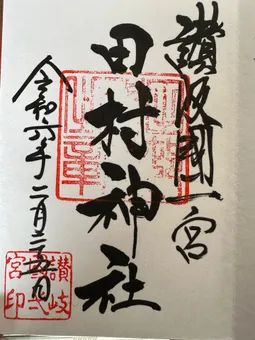 讚岐國一宮
田村神社
令和六年二月二五日
讃岐
宮印